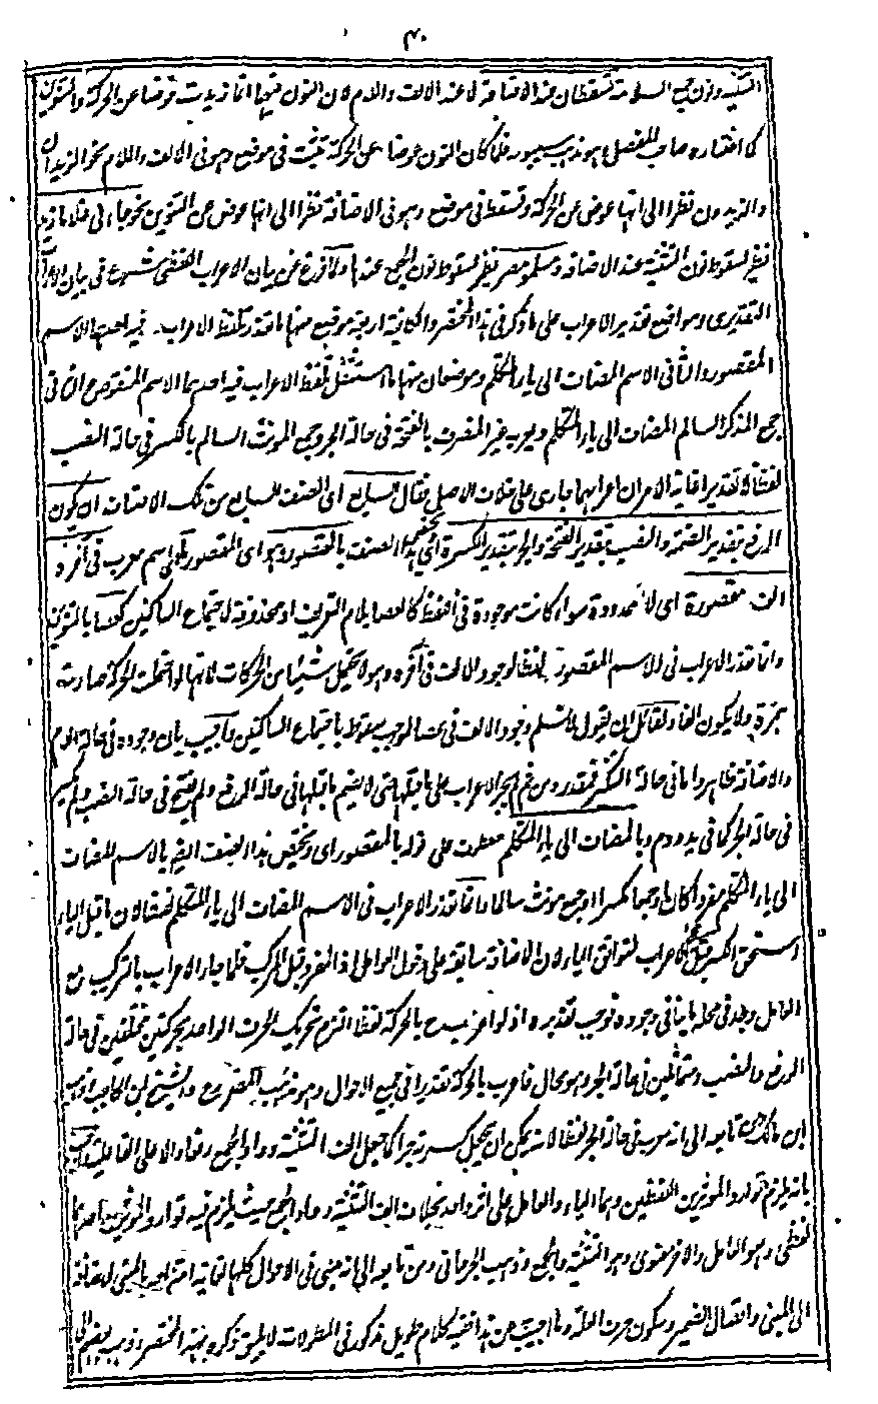 ۴۰
التثنية ونون جمع السلامة تسقطان عند الاضافة لا عند الالف واللام لان النون فيهما انما زيدت عوضا عن الحركة والتنوين
كما اختاره صاحب المفصل وهو مذهب سيبويه فلما كان النون عوضا عن الحركة تثبت فى موضع وهو فى الالف واللام نحو الزيدان
والزيدون نظرا الى انها عوض عن الحركة وتسقط فى موضع وهو فى الاضافة نظرا الى انها عوض عن التنوين نحو جاءنى غلاما زيد
نظير لسقوط نون التثنية عند الاضافة ومسلمو مصر نظير لسقوط نون الجمع عندها ولما فرغ عن بيان الاعراب اللفظى شرع فى بيان الاعراب
التقديرى ومواضع تقدير الاعراب على ما ذكر فى هذا المختصر والكافية اربعة موضع منها ما تعذر تلفظ الاعراب فيه احدهما الاسم
المقصور والثانى الاسم المضاف الى ياء المتكلم وموضعان منها ما استثقل تلفظ الاعراب فيه احدهما الاسم المنقوص والثانى
جمع المذكر السالم المضاف الى ياء المتكلم ويعرب غير المنصرف بالفتحة فى حالة الجر وجمع المونث السالم بالكسر فى حالة النصب
لفظا لا تقديرا غاية الامر ان اعرابهما جارى على خلاف الاصل فقال السابع اى الصنف السابع من تلك الاصناف ان يكون
الرفع بتقدير الضمة والنصب بتقدير الفتحة والجر بتقدير الكسرة اى يختص هذا الصنف بالمقصور وهو اى المقصور كل اسم معرب فى آخره
الف مقصورة اى لا ممدودة سواء كانت موجودة فى اللفظ كالعصا بلام التعريف او محذوفة لاجتماع الساكنين كعصا بالتنوين
وانما تعذر الاعراب فى الاسم المقصور لفظا لوجود الالف فى آخره وهو لا يحتمل شيئا من الحركات لانها لو احتملت الحركة صارت
همزة ولا يكون الفا ولقائل ان يقول لا نسلم وجود الالف فى عصا لوجوب سقوطه باجتماع الساكنين واجيب بان وجوده فى حالة اللام
والاضافة ظاهر واما فى حالة التنكير فمقدر ومن ثم لم يجر الاعراب على ما قبلها حتى لا يضم ما قبلها فى حالة الرفع ولم يفتح فى حالة النصب ولم يكسر
فى حالة الجر كما فى يد ودم وبالمضاف الى ياء المتكلم معطوف على قوله بالمقصور اى ويختص هذا الصنف ايضا بالاسم المضاف
الى ياء المتكلم مفردا كان او جمعا مكسرا او جمع مونث سالما وانما تعذر الاعراب فى الاسم المضاف الى ياء المتكلم لفظا لان ما قبل الياء
استحق الكسر قبل الاعراب لتوافق الياء لان الاضافة سابقة على دخول العوامل اذ المفرد قبل المركب فلما جاء الاعراب بالتركيب مع
العامل وجد فى محله ما ينافى وجوده فوجب تقديره اذ لو اعرب ح بالحركة لفظا التزم تحريك الحرف الواحد بحركتين مختلفتين فى حالة
الرفع والنصب ومتماثلتين فى حالة الجر وهو محال فاعرب بالحركة تقديرا فى جميع الاحوال وهو مذهب المصنف رح والشيخ ابن الحاجب وذهب
ابن مالك ومن تابعه الى انه معرب فى حالة الجر لفظا لانه يمكن ان يجعل كسرته جرا كما جعل الف التثنية وواو الجمع رفعا دالا على الفاعلية واجيب
بانه يلزم توارد الموثرين اللفظيين وهما الياء والعامل على اثر واحد بخلاف الف التثنية وواو الجمع حيث يلزم فيه توارد الموثرين احدهما
لفظى وهو العامل والآخر معنوى وهو التثنية والجمع وذهب الجرجانى ومن تابعه الى انه مبنى فى الاحوال كلها لغاية امتزاجه بالمبنى لاضافته
الى المبنى واتصال الضمير وسكون حرف العلة وما اجيب عن هذا ففيه كلام طويل مذكور فى المطولات لا يليق ذكره بهذا المختصر وذهب بعضهم الى